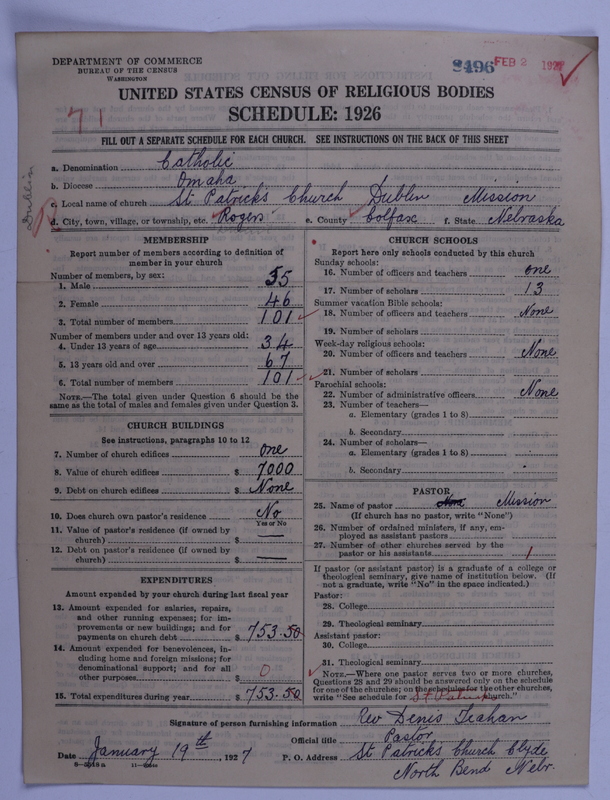 DEPARTMENT OF COMMERCE
BUREAU OF THE CENSUS
WASHINGTON
8496 FEB 2 1927
UNITED STATES CENSUS OF RELIGIOUS BODIES
SCHEDULE: 1926
71
FILL OUT A SEPARATE SCHEDULE FOR EACH CHURCH. SEE INSTRUCTIONS ON THE BACK OF THIS SHEET
Dublin
a. Denomination Catholic
b. Diocese Omaha
c. Local name of church St Patrick's Church Dublin Mission
d. City, town, village, or township, etc. Rogers e. County Colfax f. State Nebraska
MEMBERSHIP
Report number of members according to definition of
member in your church
Number of members, by sex:
1. Male 55
2. Female 46
3. Total number of members 101
Number of members under and over 13 years old:
4. Under 13 years of age 34
5. 13 years old and over 67
6. Total number of members 101
NOTE.—The total given under Question 6 should be the
same as the total of males and females given under Question 3.
CHURCH BUILDINGS
See instructions, paragraphs 10 to 12
7. Number of church edifices one
8. Value of church edifices $ 7000
9. Debt on church edifices $ None
10. Does church own pastor's residence No
Yes or No
11. Value of pastor's residence (if owned by
church) $ —
12. Debt on pastor's residence (if owned by
church) $ —
EXPENDITURES
Amount expended by your church during last fiscal year
13. Amount expended for salaries, repairs,
and other running expenses; for im-
provements or new buildings; and for
payments on church debt $ 753.50
14. Amount expended for benevolences, in-
cluding home and foreign missions; for
denominational support; and for all
other purposes $ 0
15. Total expenditures during year $ 753.50
CHURCH SCHOOLS
Report here only schools conducted by this church
Sunday schools:
16. Number of officers and teachers one
17. Number of scholars 13
Summer vacation Bible schools:
18. Number of officers and teachers None
19. Number of scholars
Week-day religious schools:
20. Number of officers and teachers None
21. Number of scholars
Parochial schools:
22. Number of administrative officers None
23. Number of teachers—
a. Elementary (grades 1 to 8)
b. Secondary
24. Number of scholars—
a. Elementary (grades 1 to 8)
b. Secondary
PASTOR
25. Name of pastor None Mission
(If church has no pastor, write "None")
26. Number of ordained ministers, if any, em-
ployed as assistant pastors
27. Number of other churches served by the
pastor or his assistants 1
If pastor (or assistant pastor) is a graduate of a college or
theological seminary, give name of institution below. (If
not a graduate, write "No" in the space indicated.)
Pastor:
28. College
29. Theological seminary
Assistant pastor:
30. College
31. Theological seminary
NOTE.—Where one pastor serves two or more churches,
Questions 28 and 29 should be answered only on the schedule
for one of the churches; on the schedules for the other churches,
write "See schedule for St Patrick church."
Signature of person furnishing information Rev Denis Teahan
Official title Pastor
Date January 19th, 1927 P. O. Address St Patricks Church Clyde
North Bend Nebr.